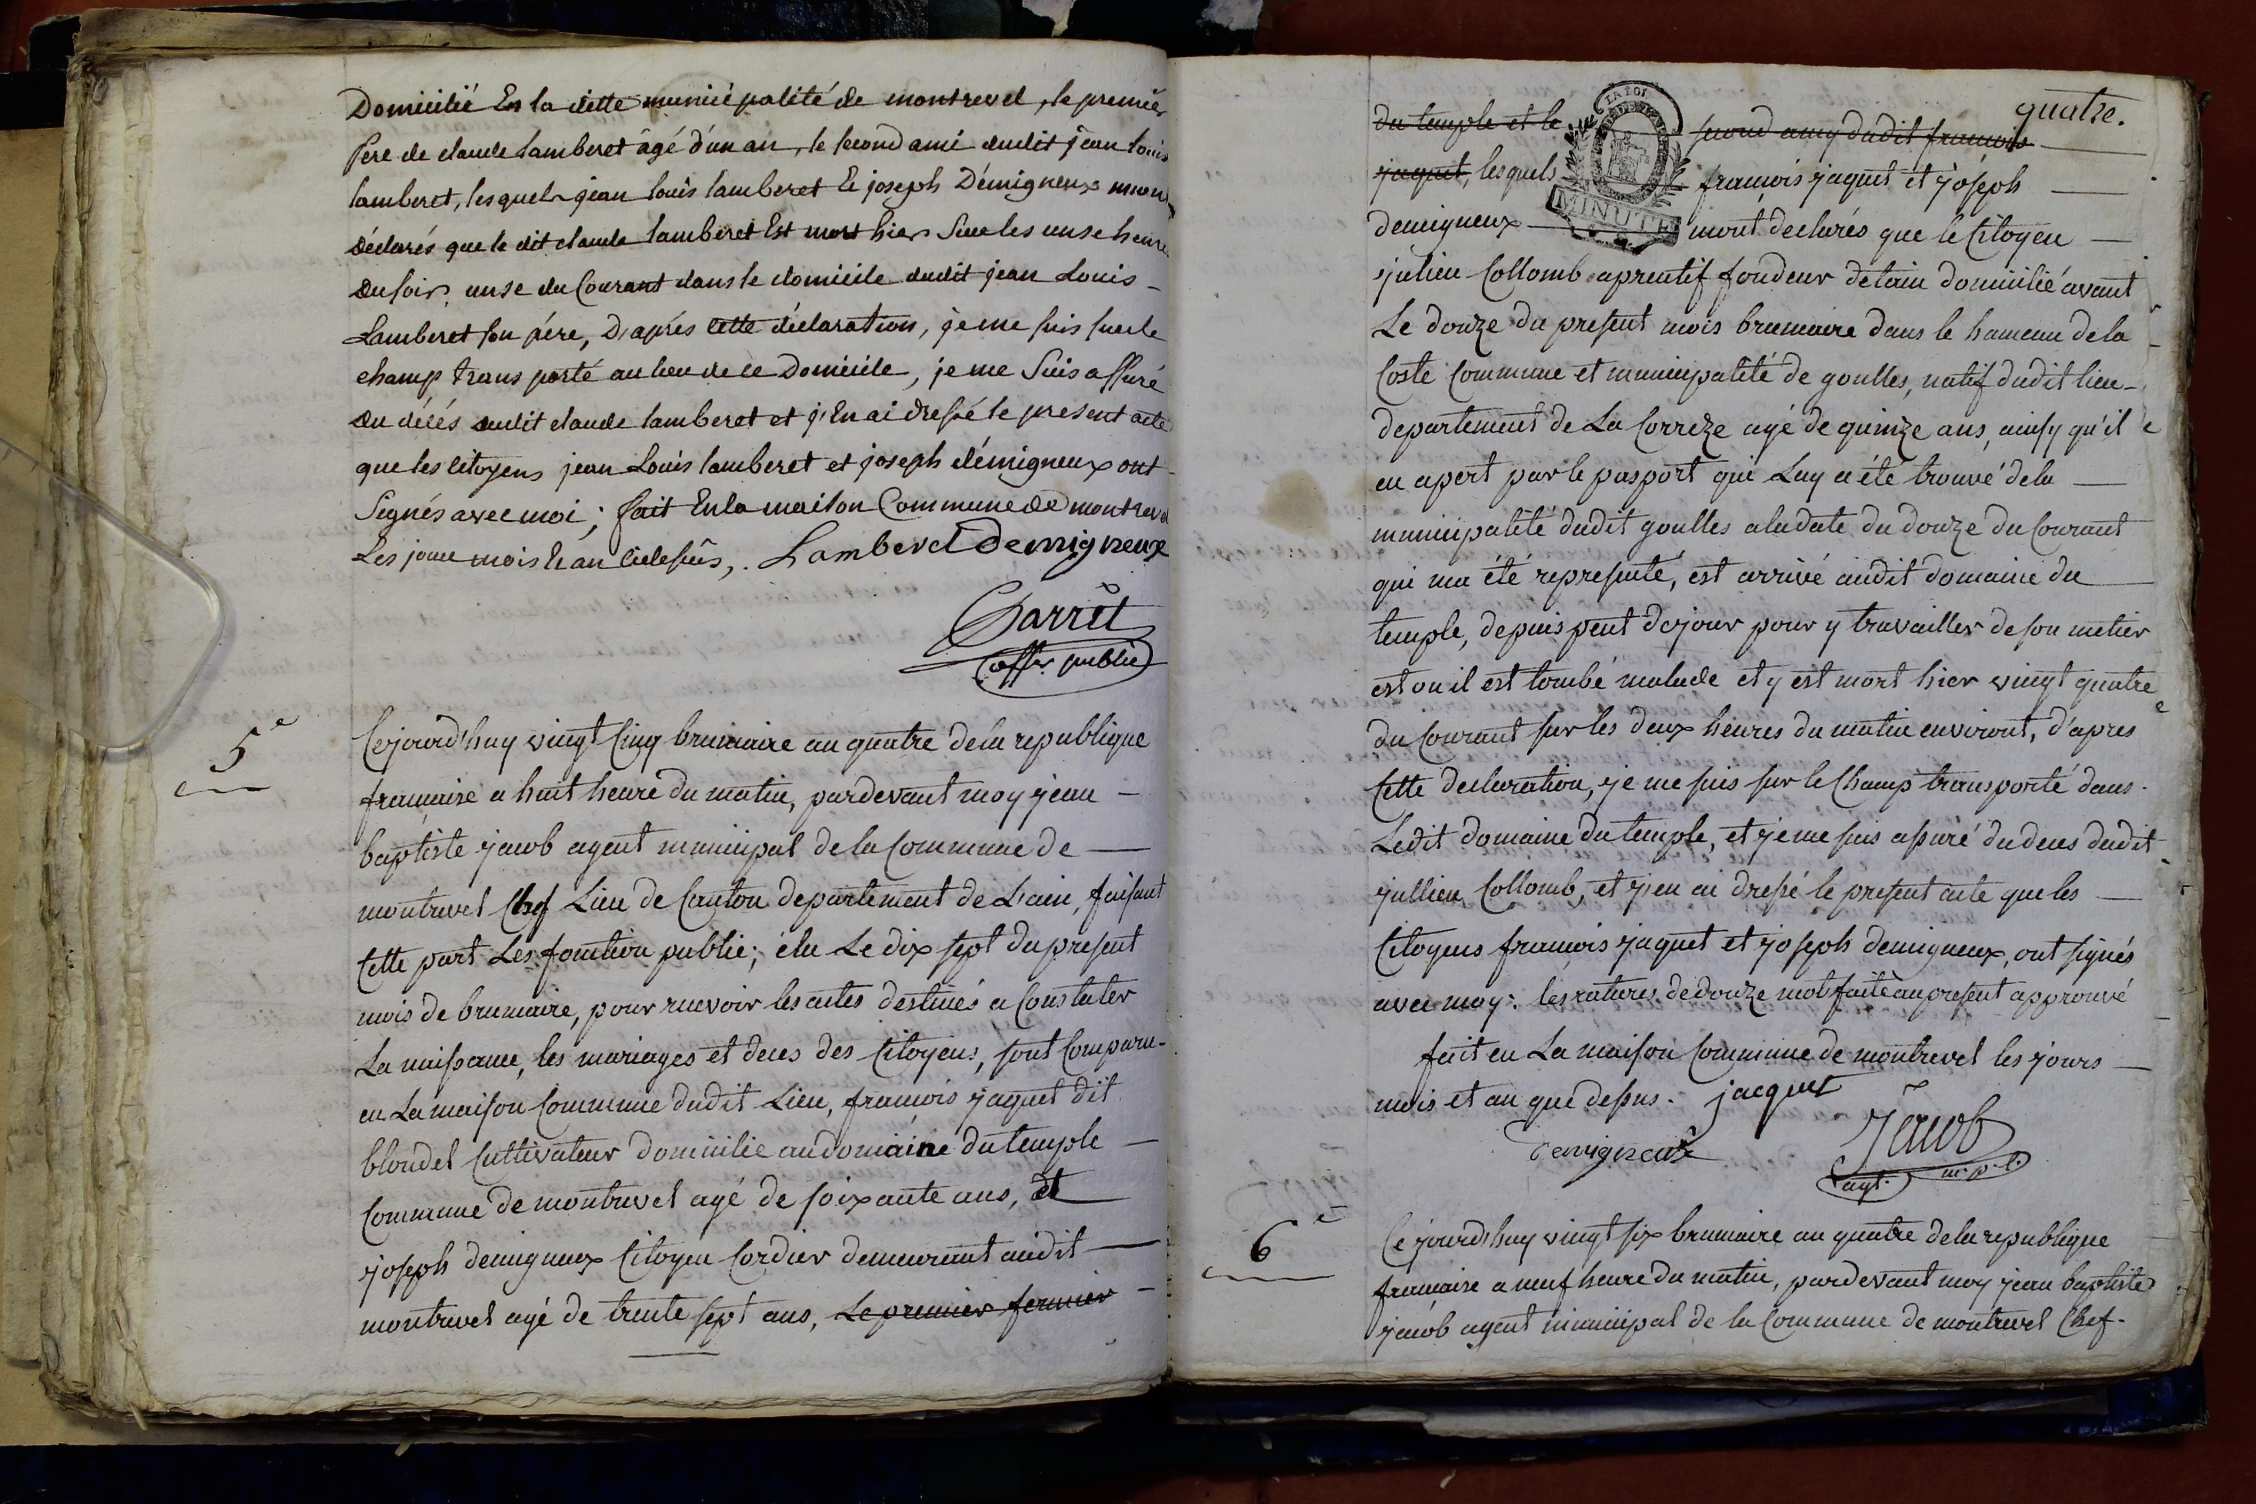 Domicilié En la ditte municipalité de montrevel, le premier
pere de claude Lamberet âgé d'un an, le second ami dudit jean louis
lamberet, lesquels jean louis lamberet & joseph Démigneux m'ont
déclarés que le dit claude lamberet Est mort hier sur les unse heures
du soir, unse du Courant dans le domicile dudit jean Louis
Lamberet son pére, D'aprés cette déclaration, je me suis sur le
champ transporté au lieu de ce Domicile, je me suis assuré
du décés dudit claude lamberet et j'En ai dressé le present acte
que les citoyens jean Louis lamberet et joseph démigneux ont
Signés avec moi; fait En la maison Commune de montrevel
Les jour mois & an cidessus,. Lamberet Demigneux
Parrêt
offr. public
5e
Cejourd'huy vingt Cinq brumaire an quatre de la republique
francaise a huit heure du matin, pardevant moy jean
baptiste jacob agent municipal de la Commune de
montrevel Chef Lieu de Canton departement de L'ain, faisant
Cette part Les fonction public; élu Le dix sept du present
mois de brumaire, pour recevoir les actes destinés a Constater
La naissance, les mariages et deces des Citoyens, sont Comparu
en La maison Commune dudit Lieu, francois jaquet dit
blondel Cultivateur domicilie au domaine du temple
Commune de montrevel agé de soixante ans, et
joseph demigneux Citoyen Cordier demeurant audit
montrevel agé de trente sept ans, Le premier fermier
quatre.
LA LOI
MINUTE
du temple et le second amy dudit francois
jaquet, lesquels francois jaquet et joseph
demigneux mont declarés que le Citoyen
julien Collomb aprentif fondeur detain domicilié avant
Le douze du present mois brumaire dans le hameau de la
Coste Commune et municipalité de goulles, natif dudit lieu
departement de La Correze agé de quinze ans, ainsy qu'il
en apert par le pasport qui Luy a été trouvé de la
municipalité dudit goulles a la date du douze du Courant
qui ma été representé, est arrivé audit domaine du
temple, depuis peut de jour pour y travailler de son metier
est ou il est tombé malade et y est mort hier vingt quatre
du Courant sur les deux heures du matin environt, d'apres
Cette declaration, je me suis sur le Champ transporté dans
Ledit domaine du temple, et je me suis assuré du deces dudit
jullien Collomb, et j'en ai dressé le present acte que les
Citoyens francois jaquet et joseph demigneux, ont signés
avec moy: les ratures de douze mot faite au present approuvé
fait en La maison Commune de montrevel les jours
mois et an que dessus. jacquet
Demigneux Jacob
agt. m.p.l.
6e
Cejourd'huy vingt six brumaire an quatre de la republique
francaise a neuf heure du matin, pardevant moy jean baptiste
jacob agent municipal de la Commune de montrevel Chef-